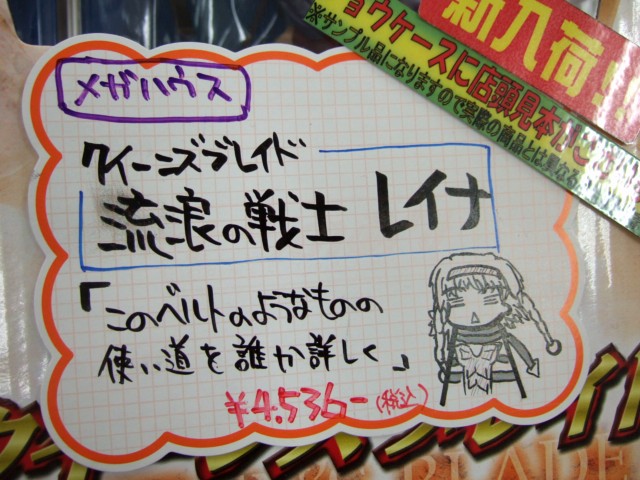 新入荷!!
ョウケースに店頭見本がご
※サンプル品になりますので実際の商品とは異な
メガハウス
クイーンズブレイド
流浪の戦士 レイナ
「このベルトのようなものの
使い道を誰か詳しく」
¥4.536-(税込)
BLADE